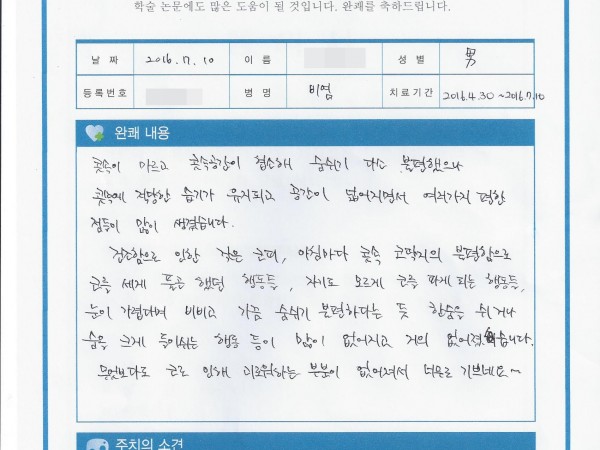 학술 논문에도 많은 도움이 될 것입니다. 완쾌를 축하드립니다.
날 짜 2016. 7. 10 이 름 성 별 男
등록번호 병 명 비염 치료기간 2016.4.30 ~2016.7.10
완쾌 내용
콧속이 마르고 콧속공간이 협소해 숨쉬기 다소 불편했으나
콧속에 적당한 습기가 유지되고 공간이 넓어지면서 여러가지 편한
점들이 많이 생겼습니다.
건조함으로 인한 잦은 코피, 아침마다 콧속 코딱지의 불편함으로
코를 세게 풀곤 했던 행동들, 자기도 모르게 코를 파게 되는 행동들,
눈이 가렵다며 비비고 가끔 숨쉬기 불편하다는 듯 한숨을 쉬거나
숨을 크게 들이쉬는 행동 등이 많이 없어지고 거의 없어졌습니다.
무엇보다도 코로 인해 괴로워하는 부분이 없어져서 너무나 기쁘네요~
주치의 소견